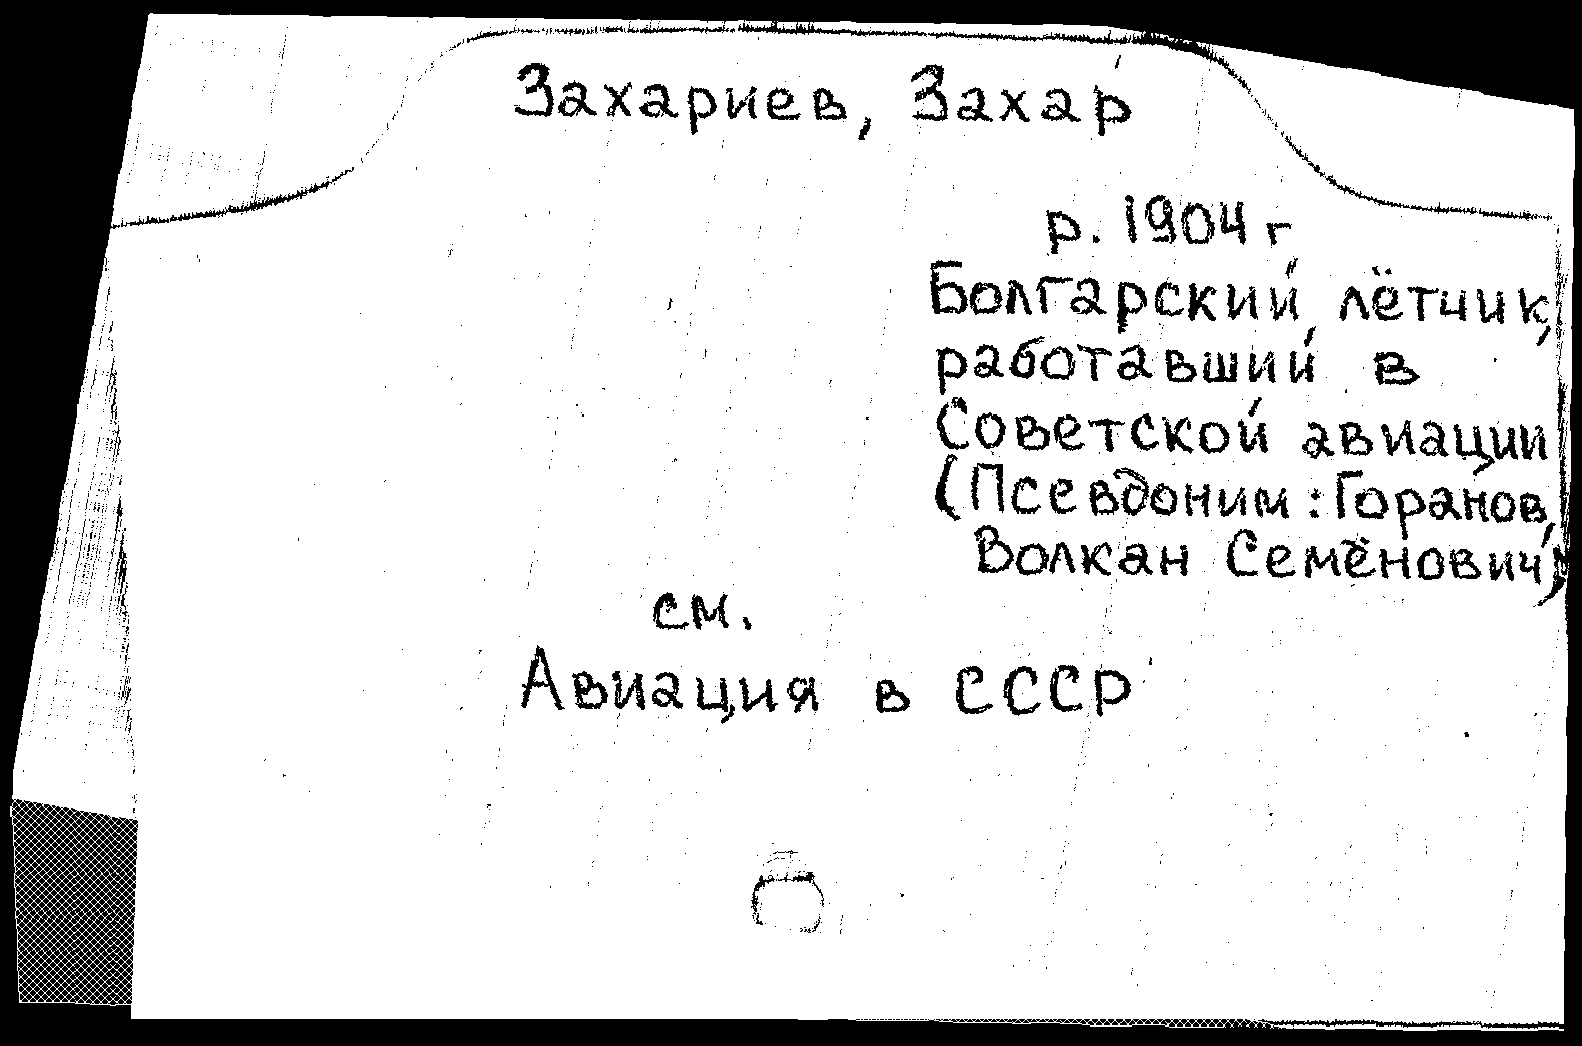 Захариев, Захар
р. 1904 г,
Болгарский лётчик,
работавший в
Советской авиации
(Псевдоним: Горанов,
Волкан Семёнович)
см.
Авиация в СССР